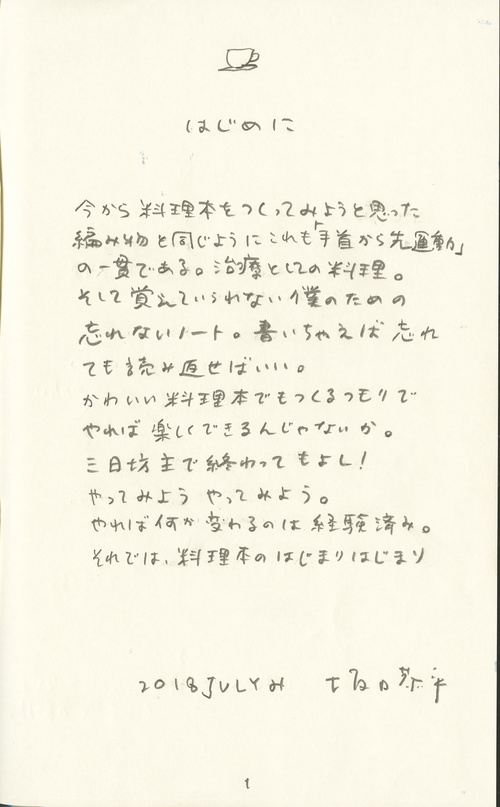 はじめに
今から料理本をつくってみようと思った
編み物と同じようにこれも「手首から先運動」
の一貫である。治療としての料理。
そして覚えていられない僕のための
忘れないノート。書いちゃえば忘れ
ても読み返せばいい。
かわいい料理本でもつくるつもりで
やれば楽しくできるんじゃないか。
三日坊主で終わってもよし!
やってみよう やってみよう。
やれば何か変わるのは経験済み。
それでは、料理本のはじまりはじまり
2018 JULY み 坂口恭平
1